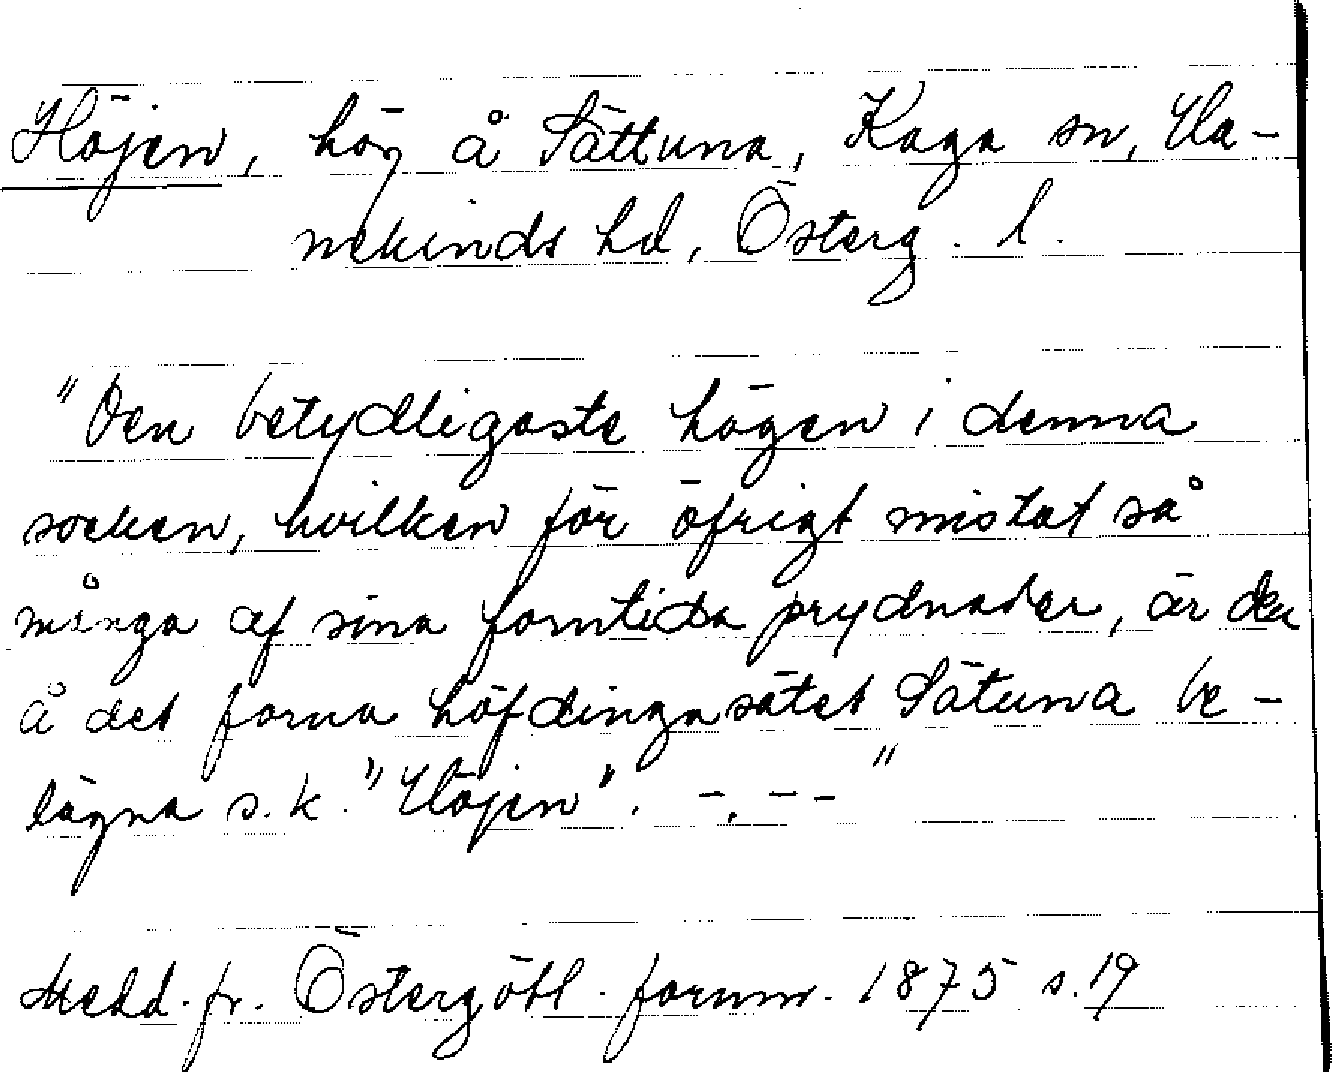 Höjen, hög å Sättuna, Kaga sn, Ha-
nekinds hd, Österg. l.
"Den betydligaste högen i denna
socken, hvilken för öfrigt mistat så
många af sina forntida prydnader, är den
å det forna höfdingasätet Sätuna be-
lägna s.k. "Höjen". -.--"
Medd. fr. Östergötl. fornm. 1875 s. 19